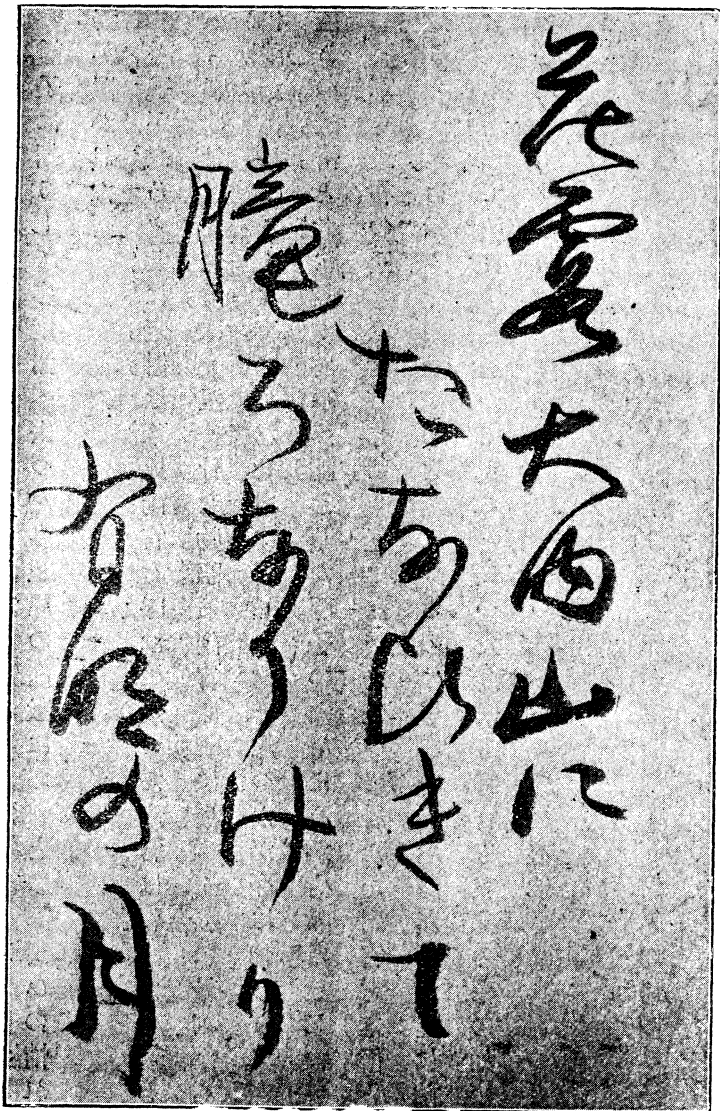 花霞大内山に
たなひきて
朧ろなりけり
有明の月